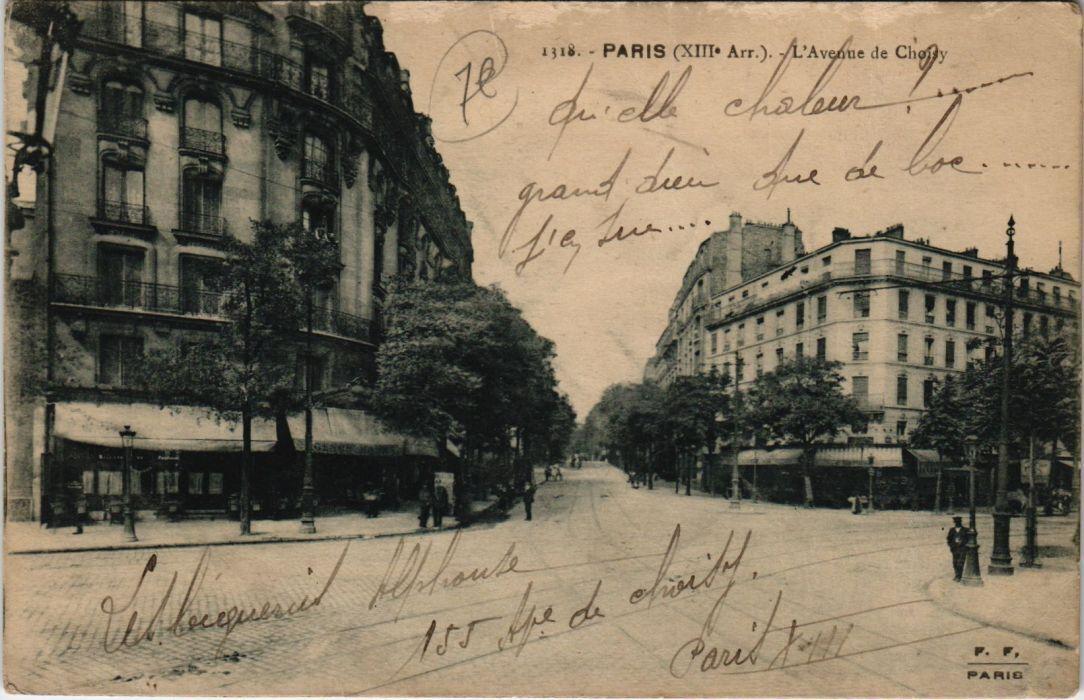 1318. - PARIS (XIIIe Arr.). - L'Avenue de Choisy
7e
qu'elle chaleur !......
grand dieu que de boc........
j'ai sue....
Alphonse
155 Ave de choisy.
Paris XIII
F. F.
PARIS